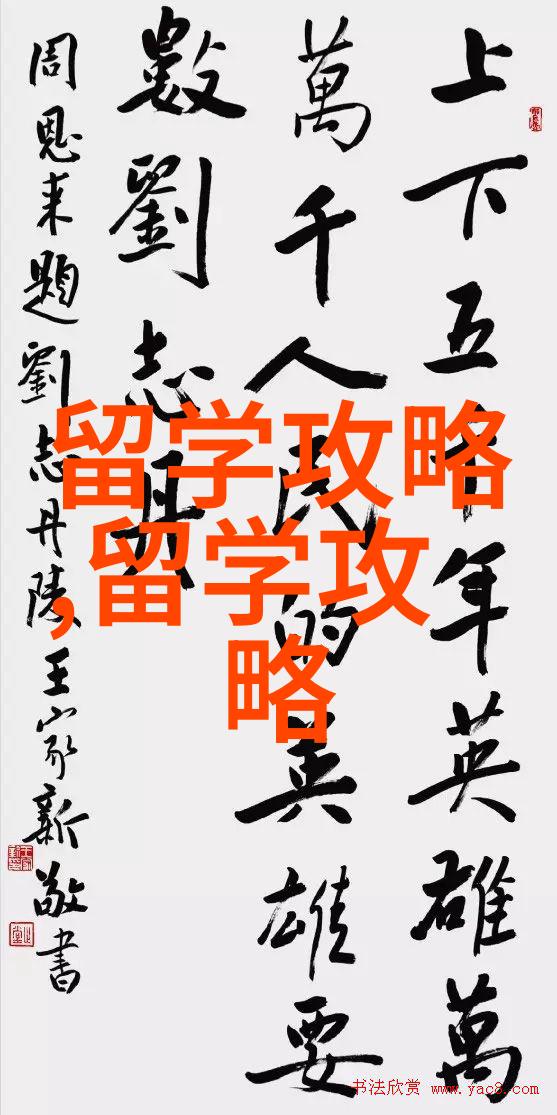 上下五千年英雄萬
萬千人民的英雄要
數劉志丹
周恩来題劉志丹陵王家新敬書
留学攻略
,留学攻
略
书法欣赏 www.yac8.com